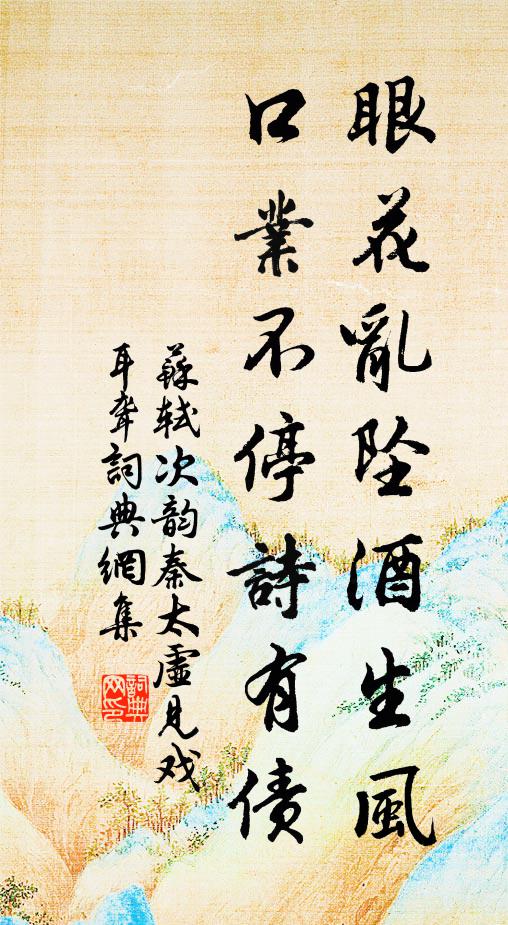 眼花亂墜酒生風
口業不停詩有債
蘇軾次韵秦太虛見戏
耳聋詞典網集
詞典网印